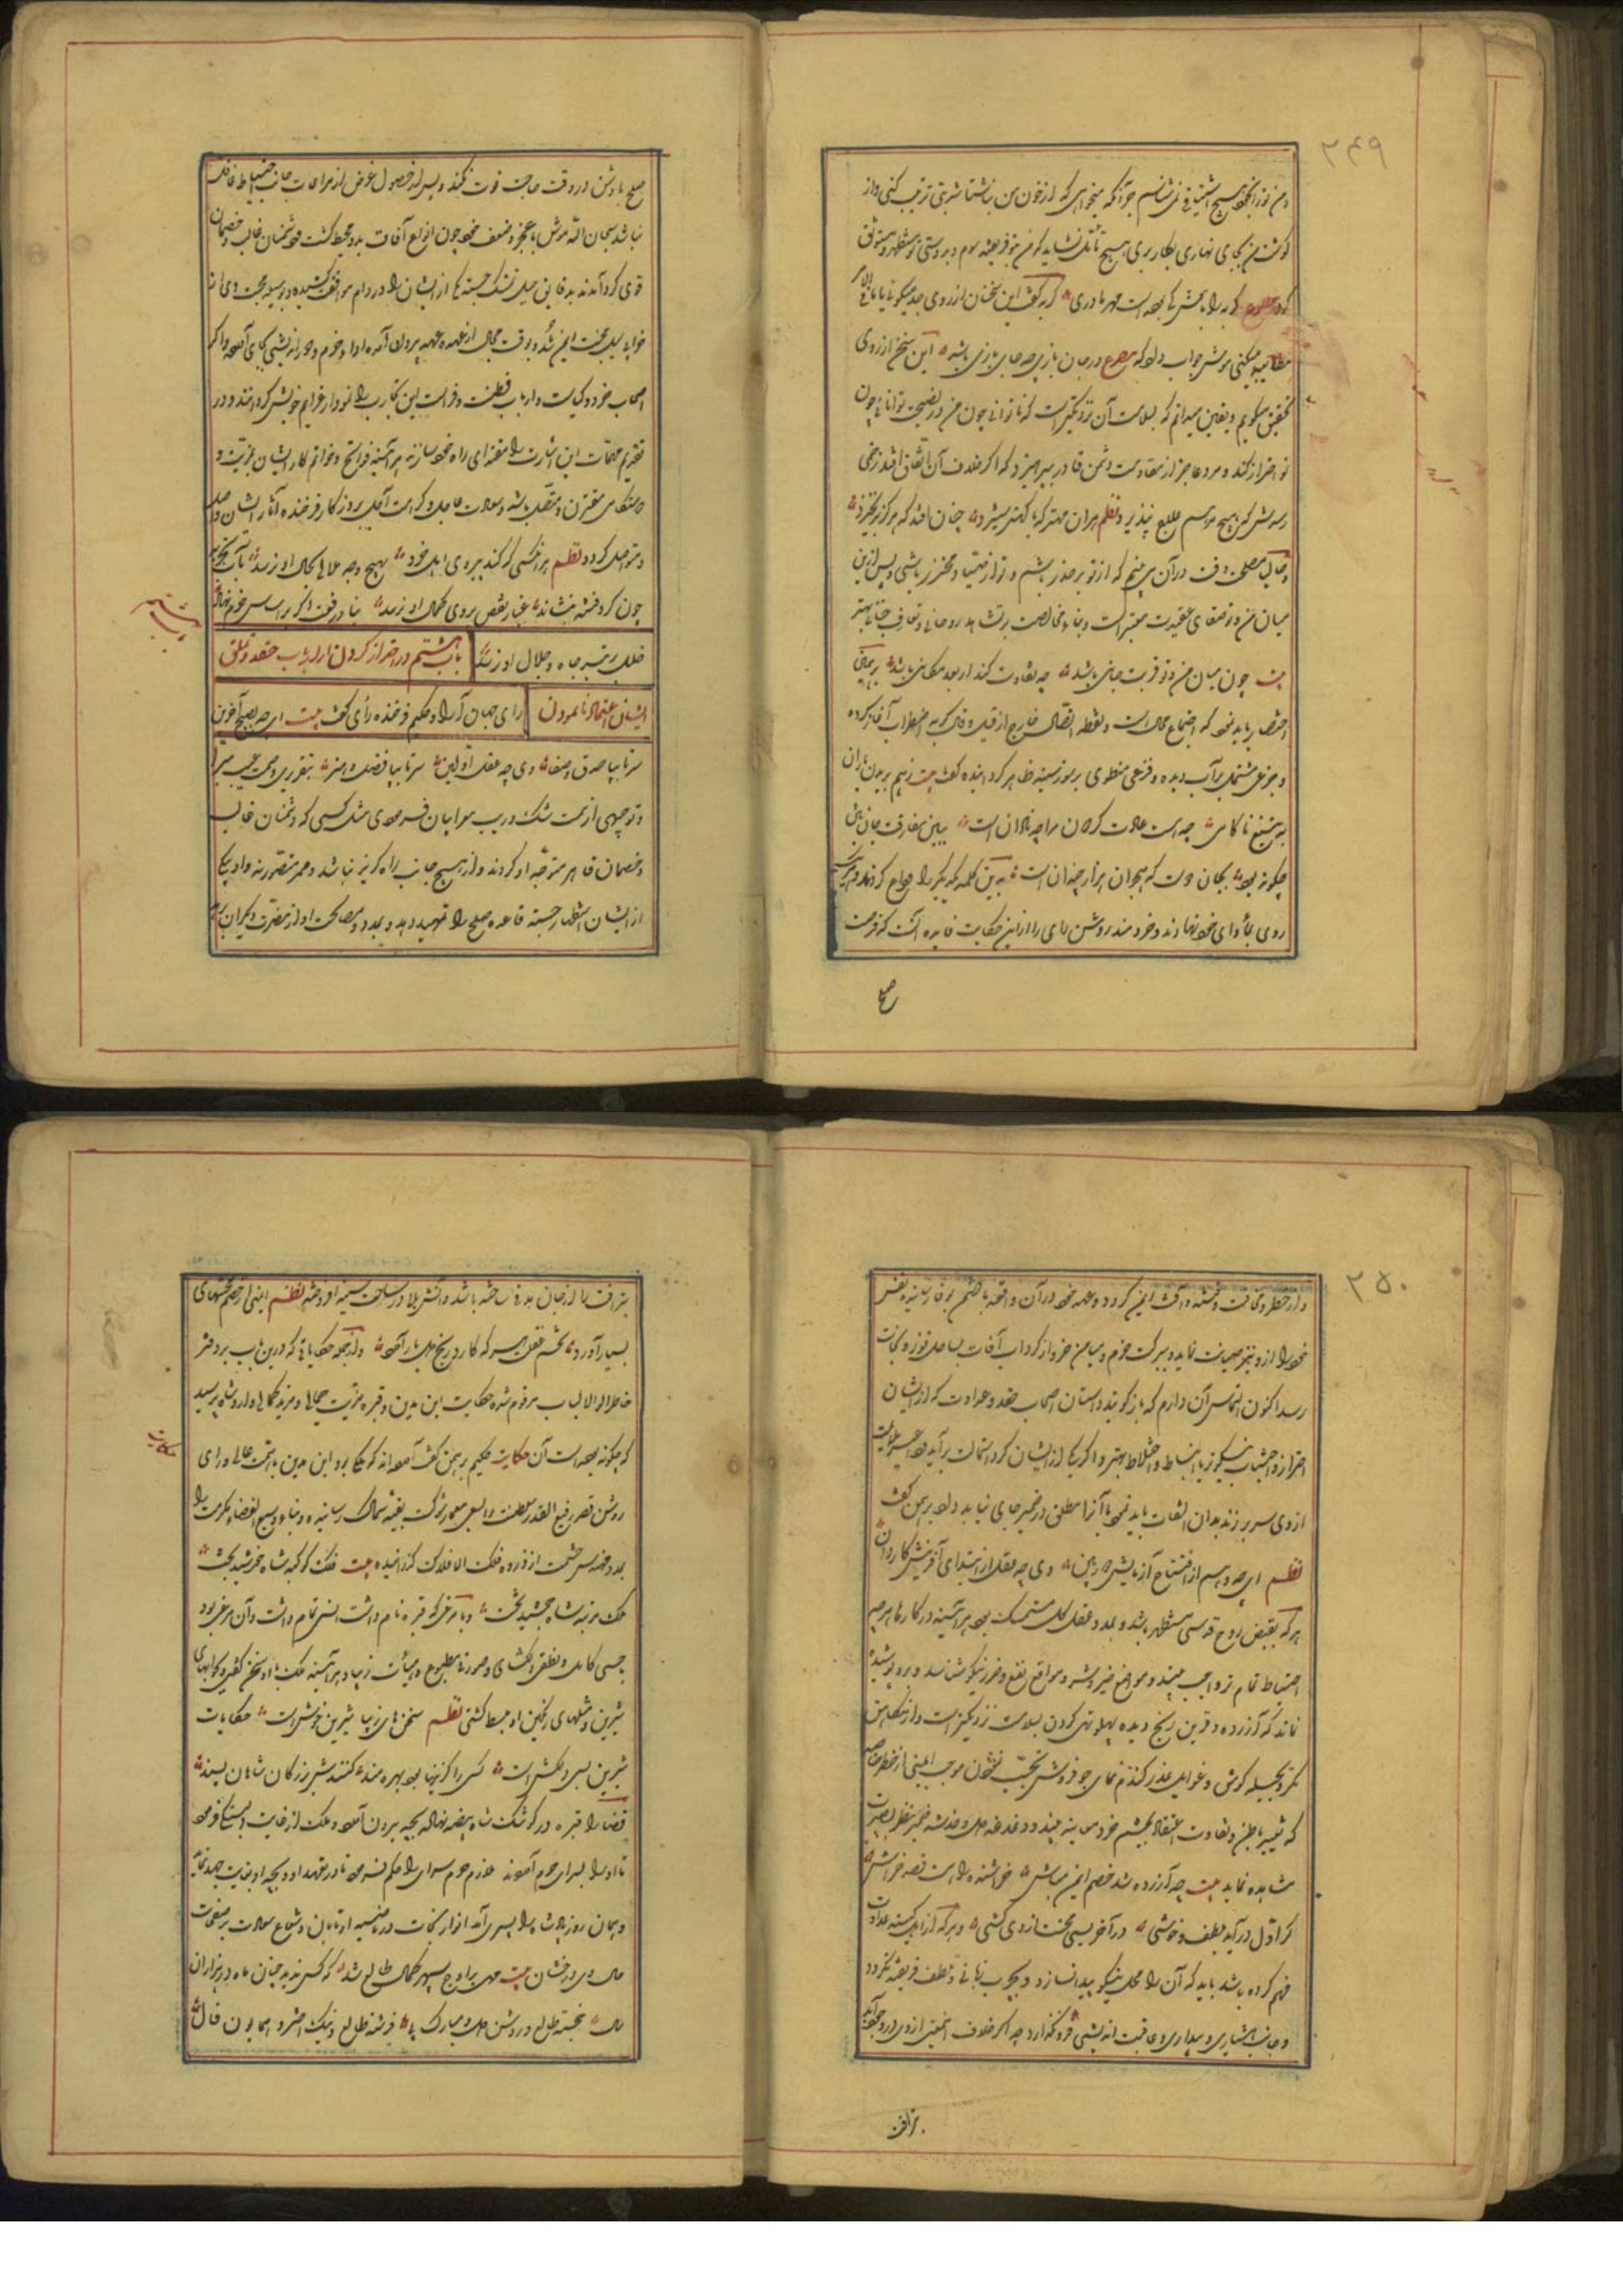 ۲۴۹
و من نوز آنجهت هیچ اشتیاقی نمی شناسم جز آنکه میخواهی که از خون من ناشتا شربتی ترتیب کنی و از
گوشت من بجای نهاری بکار بری هیچ تأمل نشاید که من بتو فریفته شوم و بدوستی تو مستظهر و مستوثق
کردم مصرع گربه را با موش کی بوده است مهر مادری گربه گفت این سخنان از روی جد میگوئی یا با من
مطایبه میکنی موش جواب داد که مصرع در جان بازی چه جای بازی باشد این سخن از روی
تحقیق میگویم و یقین میدانم که بسلامت آن نزدیکتر است که ناتوانی چون من از صحبت توانائی چون
تو احتراز کند و مرد عاجز از مقاومت دشمن قادر بپرهیزد که اگر خلاف آن اتفاق افتد زخمی
رسدش که بهیچ مرهم علاج نپذیرد نظم هران مهتر که با کهتر ستیزد چنان افتد که هرگز بر نخیزد
و حالیا مصلحت وقت در آن می بینم که از تو بر حذر باشم و تو از صیاد محترز باشی و پس ازین
میان من و تو صفای عقیدت معتبر است و بنای مخالصت بر تشاهد روحانی و تعارف جنانی بهتر
بیت چون میان من و تو قربت جانی باشد چه تفاوت کند ار بعد مکانی باشد برین
اختصار باید نمود که اجتماع محال است و نقطه اتصال خارج از قیل و قال گربه اضطراب آغاز کرده
و جزعی مشتمل بر آب دیده و فزعی منطوی بر سوز سینه ظاهر گردانیده گفت بیت
به تیغ ناکامی چه است عادت گردون مرا چه تاوان است ببین مفارقت جان ز تن
چگونه بود بجان دوست که هجران هزار چندان است برین کلمه یکدیگر را وداع کردند و هر یک
روی بمأوای خود نهادند و خردمند روشن رای را از این حکایت فایده آنست که فرصت
صلح
صلح با دشمن در وقت حاجت فوت نکند و پس از حصول غرض از مراعات جانب احتیاط غافل
نباشد سبحان الله موش با عجز و ضعف خود چون انواع آفات بدو محیط گشت و دشمنان غالب و خصمان
قوی گرد آمدند بدقایق حیل تمسک جسته یکی از ایشان را در دام موافقت کشیده و بوسیله محبت وی از
خرابه محنت ایمن شد و بوقت مجال از عهده عهد بیرون آمده ادای حزم و دوراندیشی بجای آورد و اگر
اصحاب خرد و کیاست و ارباب فطنت و فراست این تجارب را نمودار عزایم خویش گردانند و در
تقدیم مهمات این اشارت را مقتدای راه خود سازند هر آئینه فواتح و خواتم کار ایشان بمزیت و
استقامت مقترن و متصل باشد و سعادت عاجل و کرامت آجل بروزگار فرخنده آثار ایشان واصل
و متواصل گردد نظم هر آنکسی که کند پیروی اهل خرد بهیچ وجه ملالی بحال او نرسد بآب تجربه
چون گرد فتنه بنشاند غبار نقص بروی کمال او نرسد بنا رفعت اگر بر اساس حزم نهاد
فلک برتبه جاه و جلال او نرسد باب هشتم در احتراز کردن از ارباب حقد و تملق
ایشان اعتماد نا نمودن رای جهان آرا و حکیم فرخنده رأی گفت بیت ای چه صبح آخرین
سر تا بپا صدق و صفا وی چه عقل اولین سر تا بپا فضل و هنر بتقریری وصمت عیب مبرا
و توجیهی از سمت شک و ریب معرا بیان فرمودی مثل کسی که دشمنان غالب
و خصمان قاهر متوجه او گردند و از هیچ جانب راه گریز نباشد و مفر متصور نه و او بیکی
از ایشان استظهار جسته قاعده صلح را تمهید دهد و بمدد مصالحت او از مضرت دیگران برهد
باب هشتم
۲۵۰
و از خطر و مخافت و فتنه و آفت ایمن گردد و عهد خود در آن واقعه با خصم بوفا رسانیده نفس
خود را از وی نیز صیانت نماید و ببرکت حزم و میامن خرد از گرداب آفات بساحل فوز و نجات
رسد اکنون التماس آن دارم که باز گویند داستان اصحاب حقد و عداوت که از ایشان
احتراز و اجتناب نیکوتر یا انبساط و اختلاط بهتر و اگر یکی از ایشان گرد استمالت برآید
از وی سر بر زند بدان التفات باید نمود یا آنرا مطلق در ضمیر جای نباید داد برهمن گفت
نظم ای چه وهم از افتتاح آزمایش وی چه عقل از ابتدای آفرینش کاردان
هر که بفیض روح قدسی مستظهر باشد و بمدد عقل کل مستمسک بود هر آئینه در کارها هر چه
احتیاط تمام تر واجب بیند و مواضع خیر و شر و مواقع نفع و ضرر نیکو شناسد و برو پوشیده
نماند که از دوست آزرده و قرین رنج دیده پهلو تهی کردن بسلامت نزدیکتر است و از مکامن
مکر و بحیله کوش و غوایل غدر گندم نمای جو فروش تجنب نمودن موجب ایمنی از خطر خاصه
که تغییر باطن و تفاوت اعتقاد بچشم خرد معاینه بیند و دغدغه دل و خدشه ضمیر بنظر بصیرت
مشاهده نماید بیت چه آزرده شد خصم ایمن مباش خراشنده را است قصد خراش
گر اول در آید بلطف و خوشی در آخر بسی محنت از وی کشی و هر که از اهل کینه علامت عداوت
فهم کرده باشد باید که آن را محل نیکو پیدا نسازد و بچرب زبانی و تلطف فریفته نگردد
و جانب هشیاری و بیداری و عاقبت اندیشی فرو نگذارد چه اگر خلاف این معنی از وی در وجود آید
بتر آفت
تیر آفت را از جان هدفی ساخته باشد و آتش بلا در ساحت سینه افروخته نظم ایمنی از خصم محنتهای
بسیار آورد تخم غفلت هر که کارد رنج دل بار آورد و از جمله حکایاتی که درین باب بر دفتر
خاطر اولو الالباب مرقوم شده حکایت ابن مدین و قبره مزیت جمالی و مزید کمالی دارد شاه پرسید
که چگونه بوده است آن حکایت حکیم برهمن گفت آورده اند که ملکی بود ابن مدین با همت عالی و رای
روشن قصر رفیع القدر سلطنت را بسعی معمار شوکت بقبه سماک رسانیده و بنای وسیع الفضای مکرمت را
بمدد مهندس حشمت از ذروه فلک الافلاک گذرانیده بیت فلک کوکبه شاه خورشید بخت
ملک مرتبه شاه جمشید تخت و با مرغی که قبره نام داشت انسی تمام داشت و آن مرغی بود
با حسی کامل و نطقی دلگشای و صورتی مطبوع و هیأت زیبا و هر آئینه ملک با او سخن گفتی و بجوابهای
شیرین و مثلهای رنگین او منبسط گشتی نظم سخن های زیبا شیرین خوش است حکایات
شیرین بسی دلکش است کسی را کزینها بود بهره مند کنندش بزرگان شاهان پسند
قضا را قبره در کوشک شاه بیضه نهاد بچه بیرون آورد و ملک از غایت دلبستگی فرمود
تا او را بسرای حرم آوردند و ملازم حرم سرای را حکم فرمود تا در تعهد او و بچه او بغایت جهد نمایند
و همان روز پادشاه را پسری آمد انوار نجابت در ناصیه او تابان و شعاع سعادت بر صفحات
حال وی درخشان بیت مهی بر اوج سپهر کمال طالع شد که کس ندید چنان ماه در هزاران
سال خجسته طالع و روشن دل و مبارک پی فرشته طلع و نیک اختر و همایون فال
حکایت